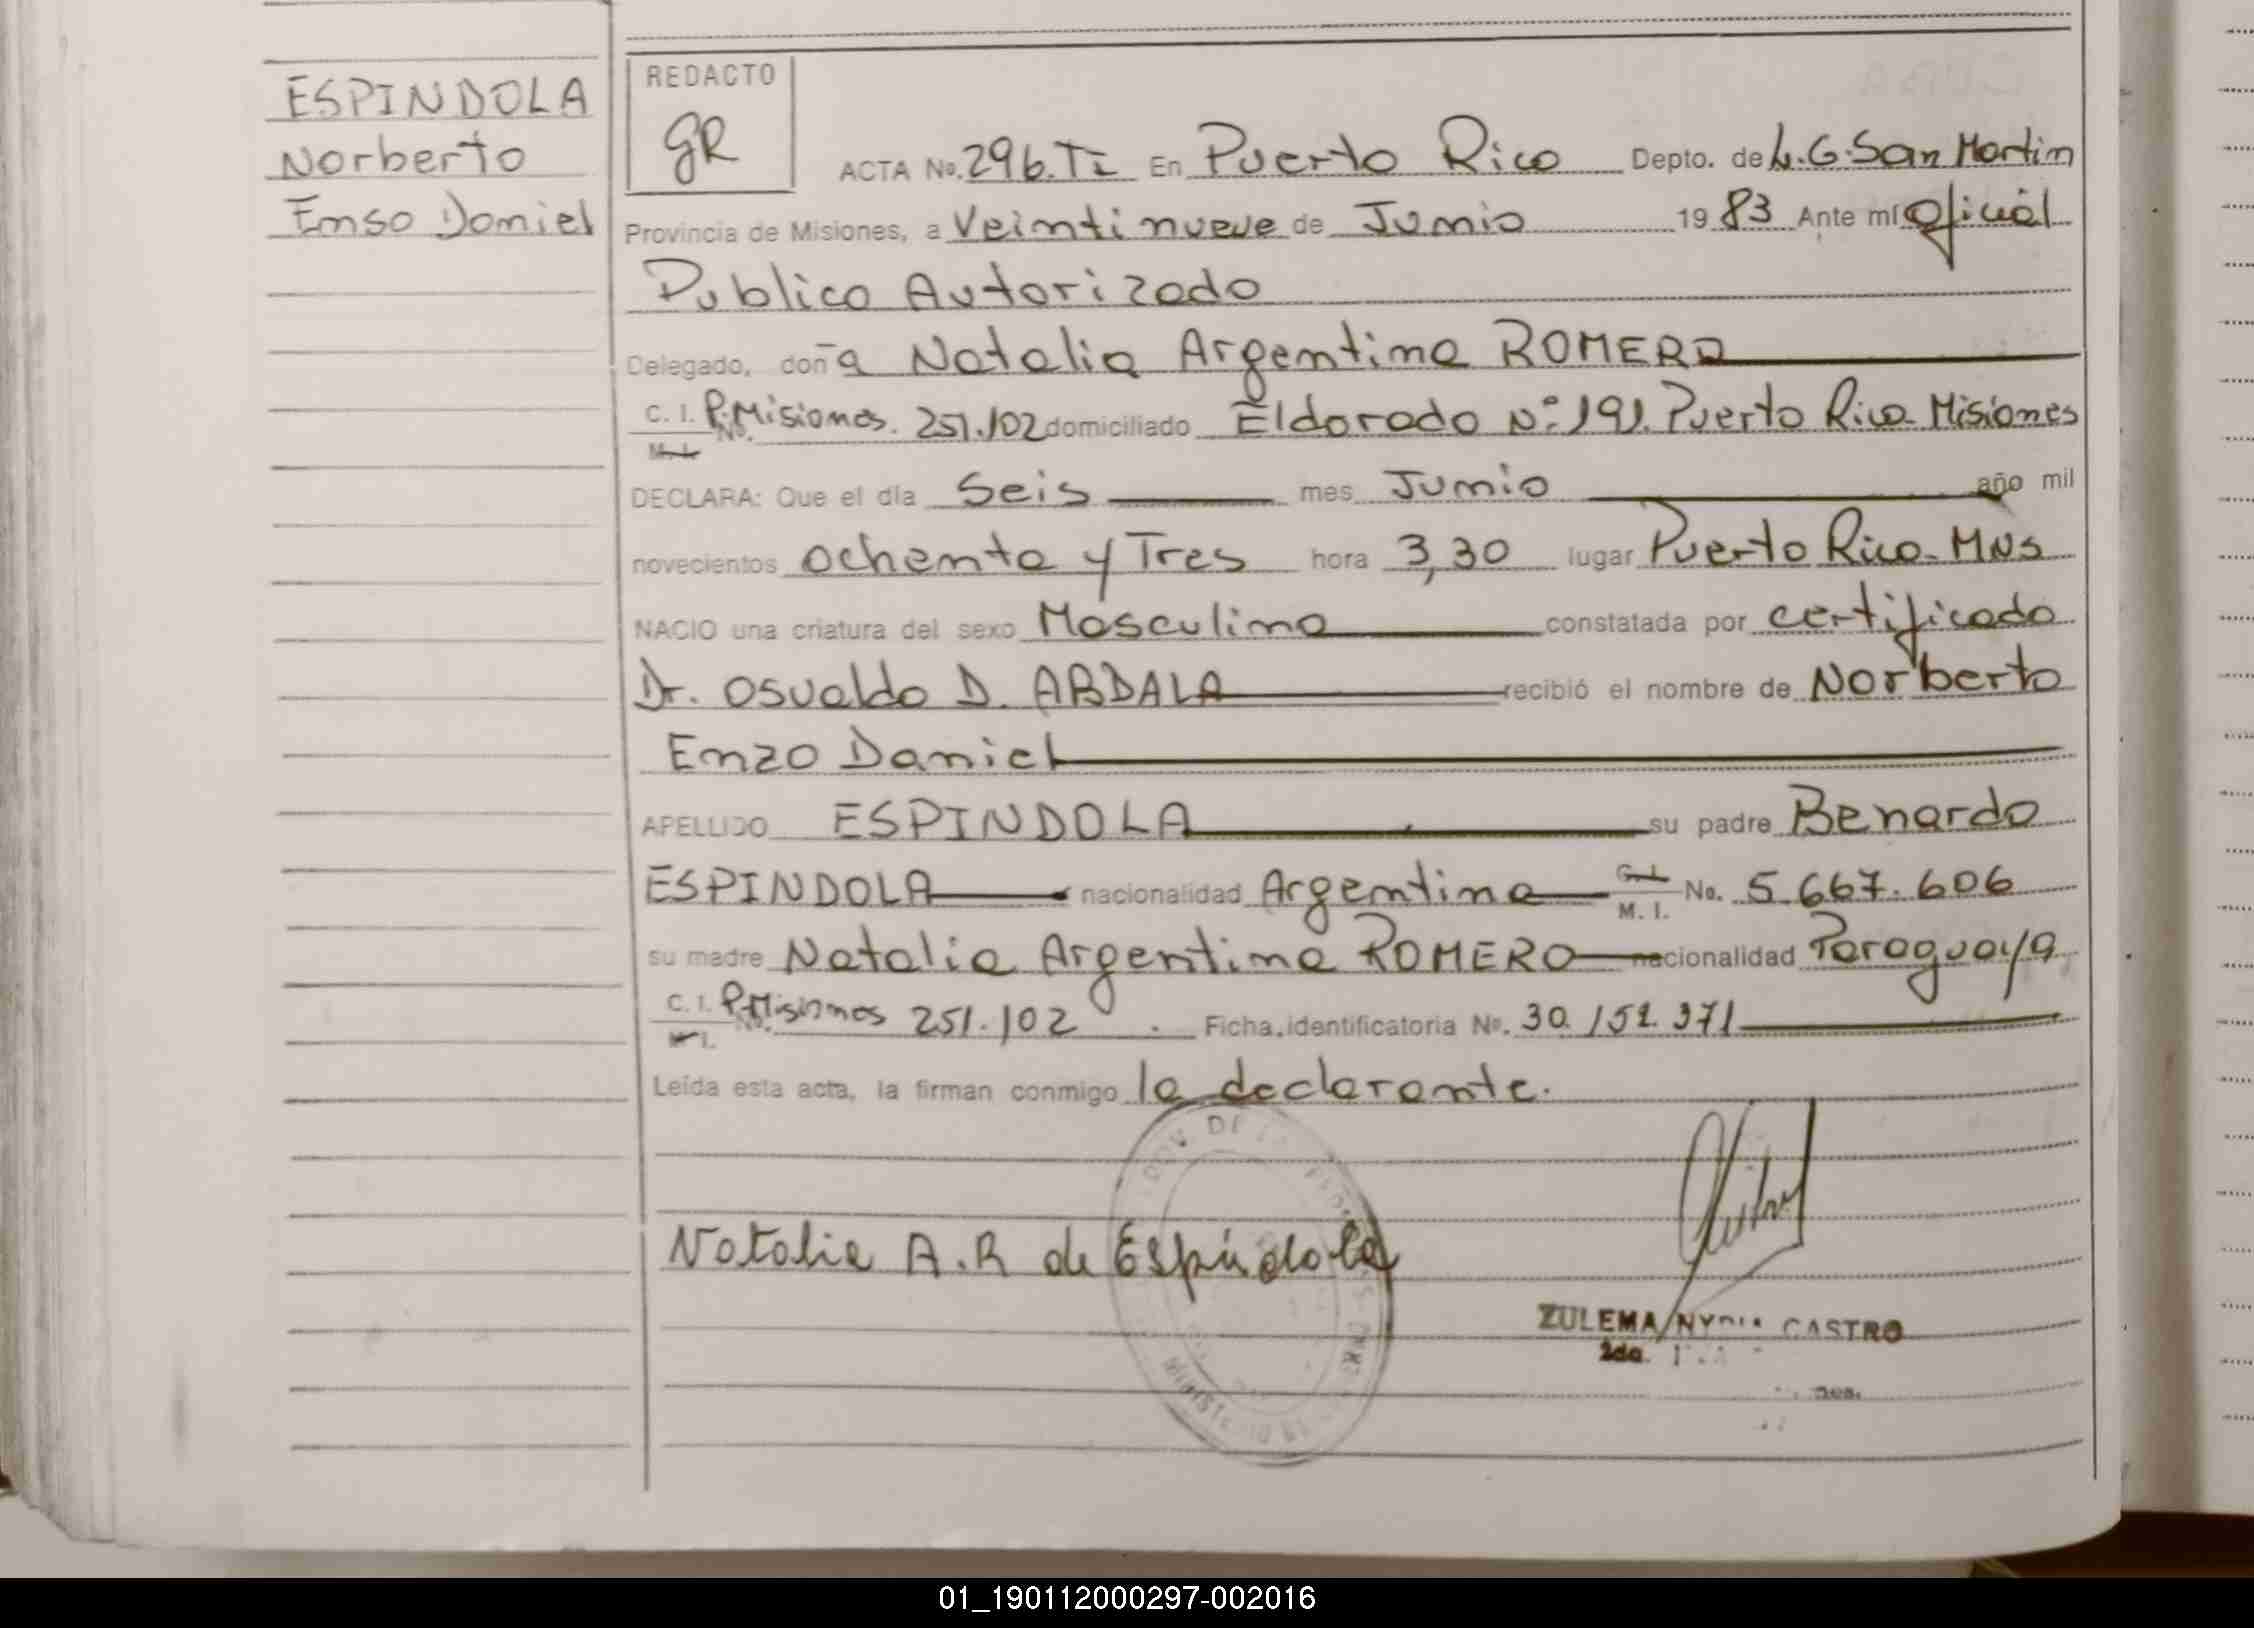 ESPINDOLA
Norberto
Enso Daniel
REDACTO
gR
ACTA No. 296. TI En Puerto Rico Depto. de L. G. San Martin
Provincia de Misiones, a Veintinueve de Junio 19 83 Ante mí Oficial
Publico Autorizado
Delegado, doña Natalia Argentina ROMERO
C. I. P. Misiones. 251.102 domiciliado Eldorado Nº 191. Puerto Rico. Misiones
M. I. No.
DECLARA: Que el día Seis mes Junio año mil
novecientos Ochenta y Tres hora 3,30 lugar Puerto Rico. MNs
NACIO una criatura del sexo Masculino constatada por certificado
Dr. Osvaldo D. ABDALA recibió el nombre de Norberto
Enzo Daniel
APELLIDO ESPINDOLA su padre Benardo
ESPINDOLA nacionalidad Argentina C. I. M. I. No. 5.667.606
su madre Natalia Argentina ROMERO nacionalidad Paraguaya
C. I. P. Misiones 251.102 Ficha identificatoria No. 30.152.371
M. I. No.
Leída esta acta, la firman conmigo la declarante.
Natalia A. R de Espíndola
ZULEMA CASTRO
2da.
01_190112000297-002016